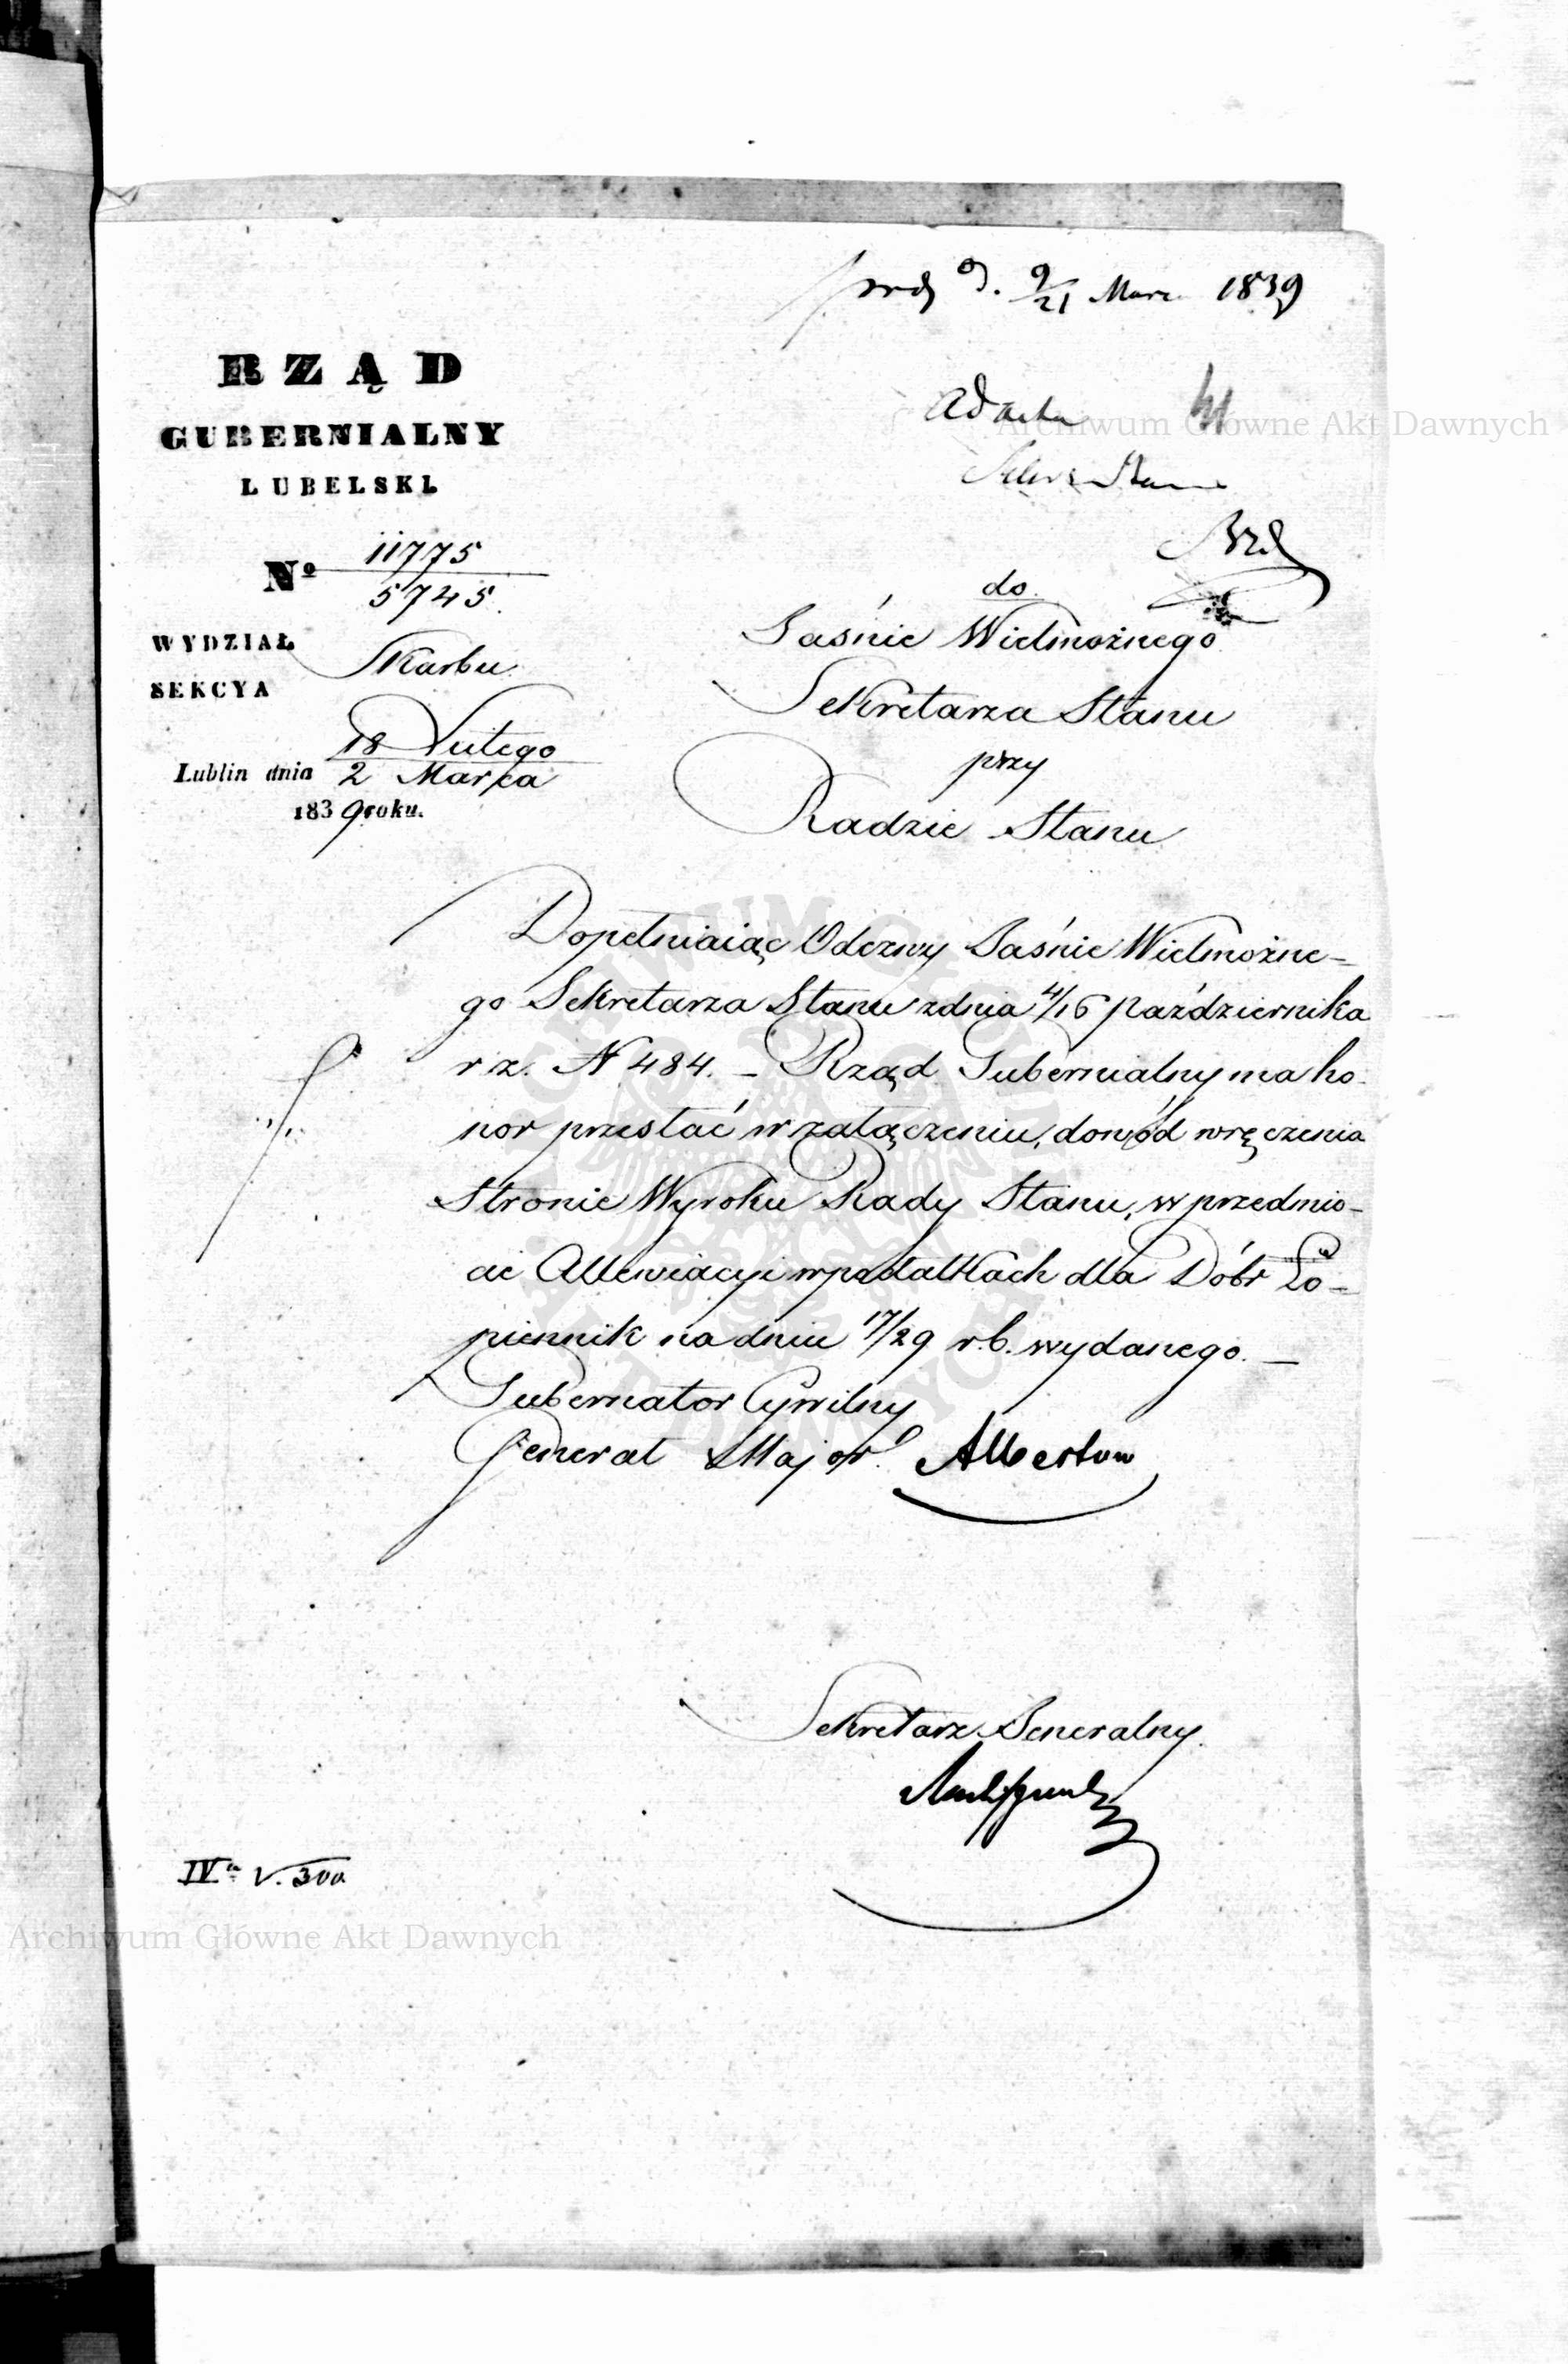 d. 9/21 Marc 1839
RZĄD
GUBERNIALNY
LUBELSKI.
ad acta
Archiwum Główne Akt Dawnych
Nº 11775
5745.
do
WYDZIAŁ Skarbu
SEKCYA
Jaśnie Wielmożnego
Sekretarza Stanu
18 Lutego
Lublin dnia 2 Marca
1839 roku.
przy
Radzie Stanu
Dopełniaiąc Odezwy Jaśnie Wielmożne-
go Sekretarza Stanu zdnia 4/16 Października
r z. N 484. – Rząd Gubernialny ma ho-
nor przesłać w załączeniu, dowód wręczenia
Stronie Wyroku Rady Stanu, w przedmio-
cie Allewiacyi w podatkach dla Dóbr Ło-
piennik na dniu 17/29 r.b. wydanego. –
Gubernator Cywilny
Generał Major Albertow
Sekretarz Generalny
IV V. 300
Archiwum Główne Akt Dawnych